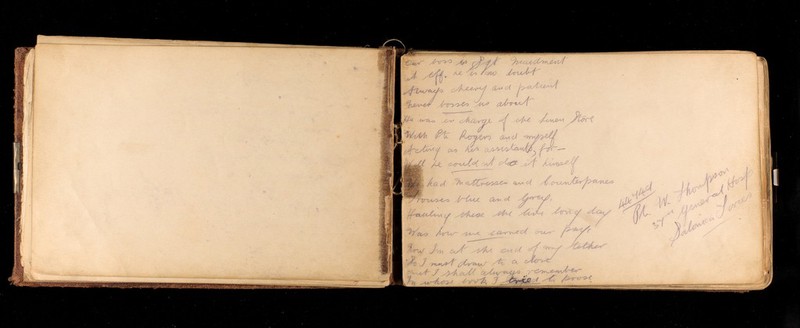 our boss is Sgt Muedment
at eff. he is no doubt
Always cheery and patient
Never bosses us about
He was in charge of the Linen Store
With Pte Rogers and myself
Acting as his assistants, for—
Well he could not do it himself
We had Mattresses and Counterpanes
Trousers blue and Grey.
Hauling these the live long day
Was how we earned our pay
Now I'm at the end of my tether
So I must draw to a close
But I shall always remember
In whose book I tried to prose
Pte W. Thompson
37th General Hosp
Salonica Forces